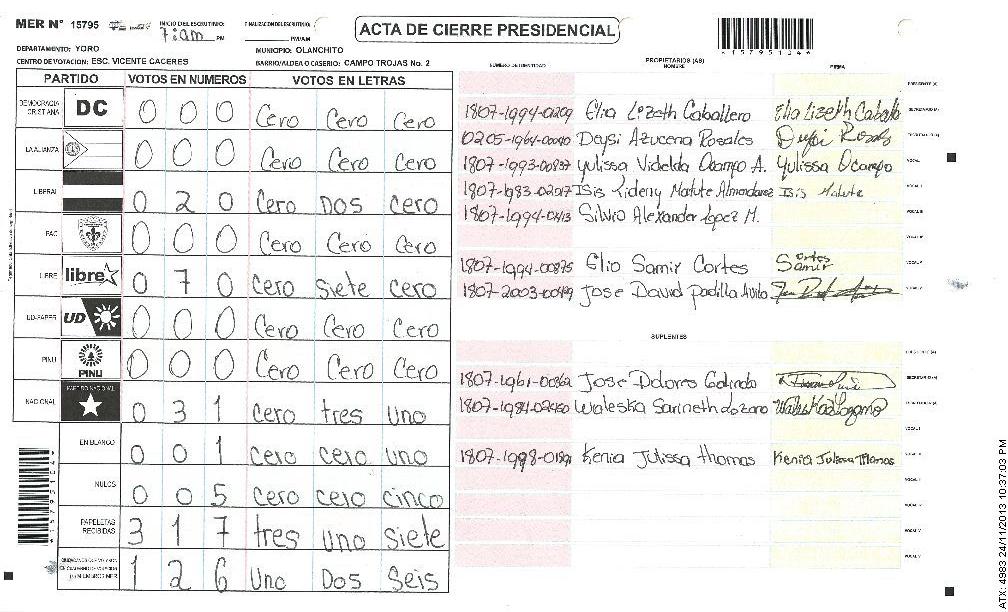 MER N° 15795
INICIO DEL ESCRUTINIO: 7: am PM
FINALIZACION DEL ESCRUTINIO: PM/AM
ACTA DE CIERRE PRESIDENCIAL
DEPARTAMENTO: YORO
MUNICIPIO: OLANCHITO
CENTRO DE VOTACION: ESC. VICENTE CACERES
BARRIO/ALDEA O CASERIO: CAMPO TROJAS No. 2
PARTIDO VOTOS EN NUMEROS VOTOS EN LETRAS
DEMOCRACIA CRISTIANA DC 0 0 0 Cero Cero Cero
LA ALIANZA 0 0 0 Cero Cero Cero
LIBERAL 0 2 0 Cero Dos cero
PAC 0 0 0 Cero Cero Cero
LIBRE libre 0 7 0 cero siete cero
UD-FAPER UD 0 0 0 Cero Cero Cero
PINU PINU 0 0 0 Cero Cero Cero
NACIONAL PARTIDO NACIONAL 0 3 1 cero tres uno
EN BLANCO 0 0 1 cero cero uno
NULOS 0 0 5 cero cero cinco
PAPELETAS RECIBIDAS 3 1 7 tres uno siete
1 2 6 Uno Dos Seis
NUMERO DE IDENTIDAD
PROPIETARIOS (AS)
NOMBRE
FIRMA
PRESIDENTE (A)
1807-1994-0209 Elia Lizeth Caballero Elia Lizeth Caballo SECRETARIO (A)
0205-1964-00040 Daysi Azucena Rosales Deysi Rosales
1807-1993-00837 Yulissa Videlda Ocampo A. Yulissa Ocampo VOCAL I
1807-1983-02017 Isis Matute Almendarez Isis Matute VOCAL II
1807-1994-0413 Silvio Alexander Lopez M. VOCAL III
1807-1994-00875 Elio Samir Cortes Cortes Samir
1807-2003-00499 Jose David padilla Avila
SUPLENTES
1807-1961-00362 Jose Dolores Galindo
1807-1984-02450 Waleska Sarineth Lozano Waleska Lozano
1807-1998-01891 Kenia Julissa thomas Kenia Julissa Thomas
ATX: 4983 24/11/2013 10:37:03 PM